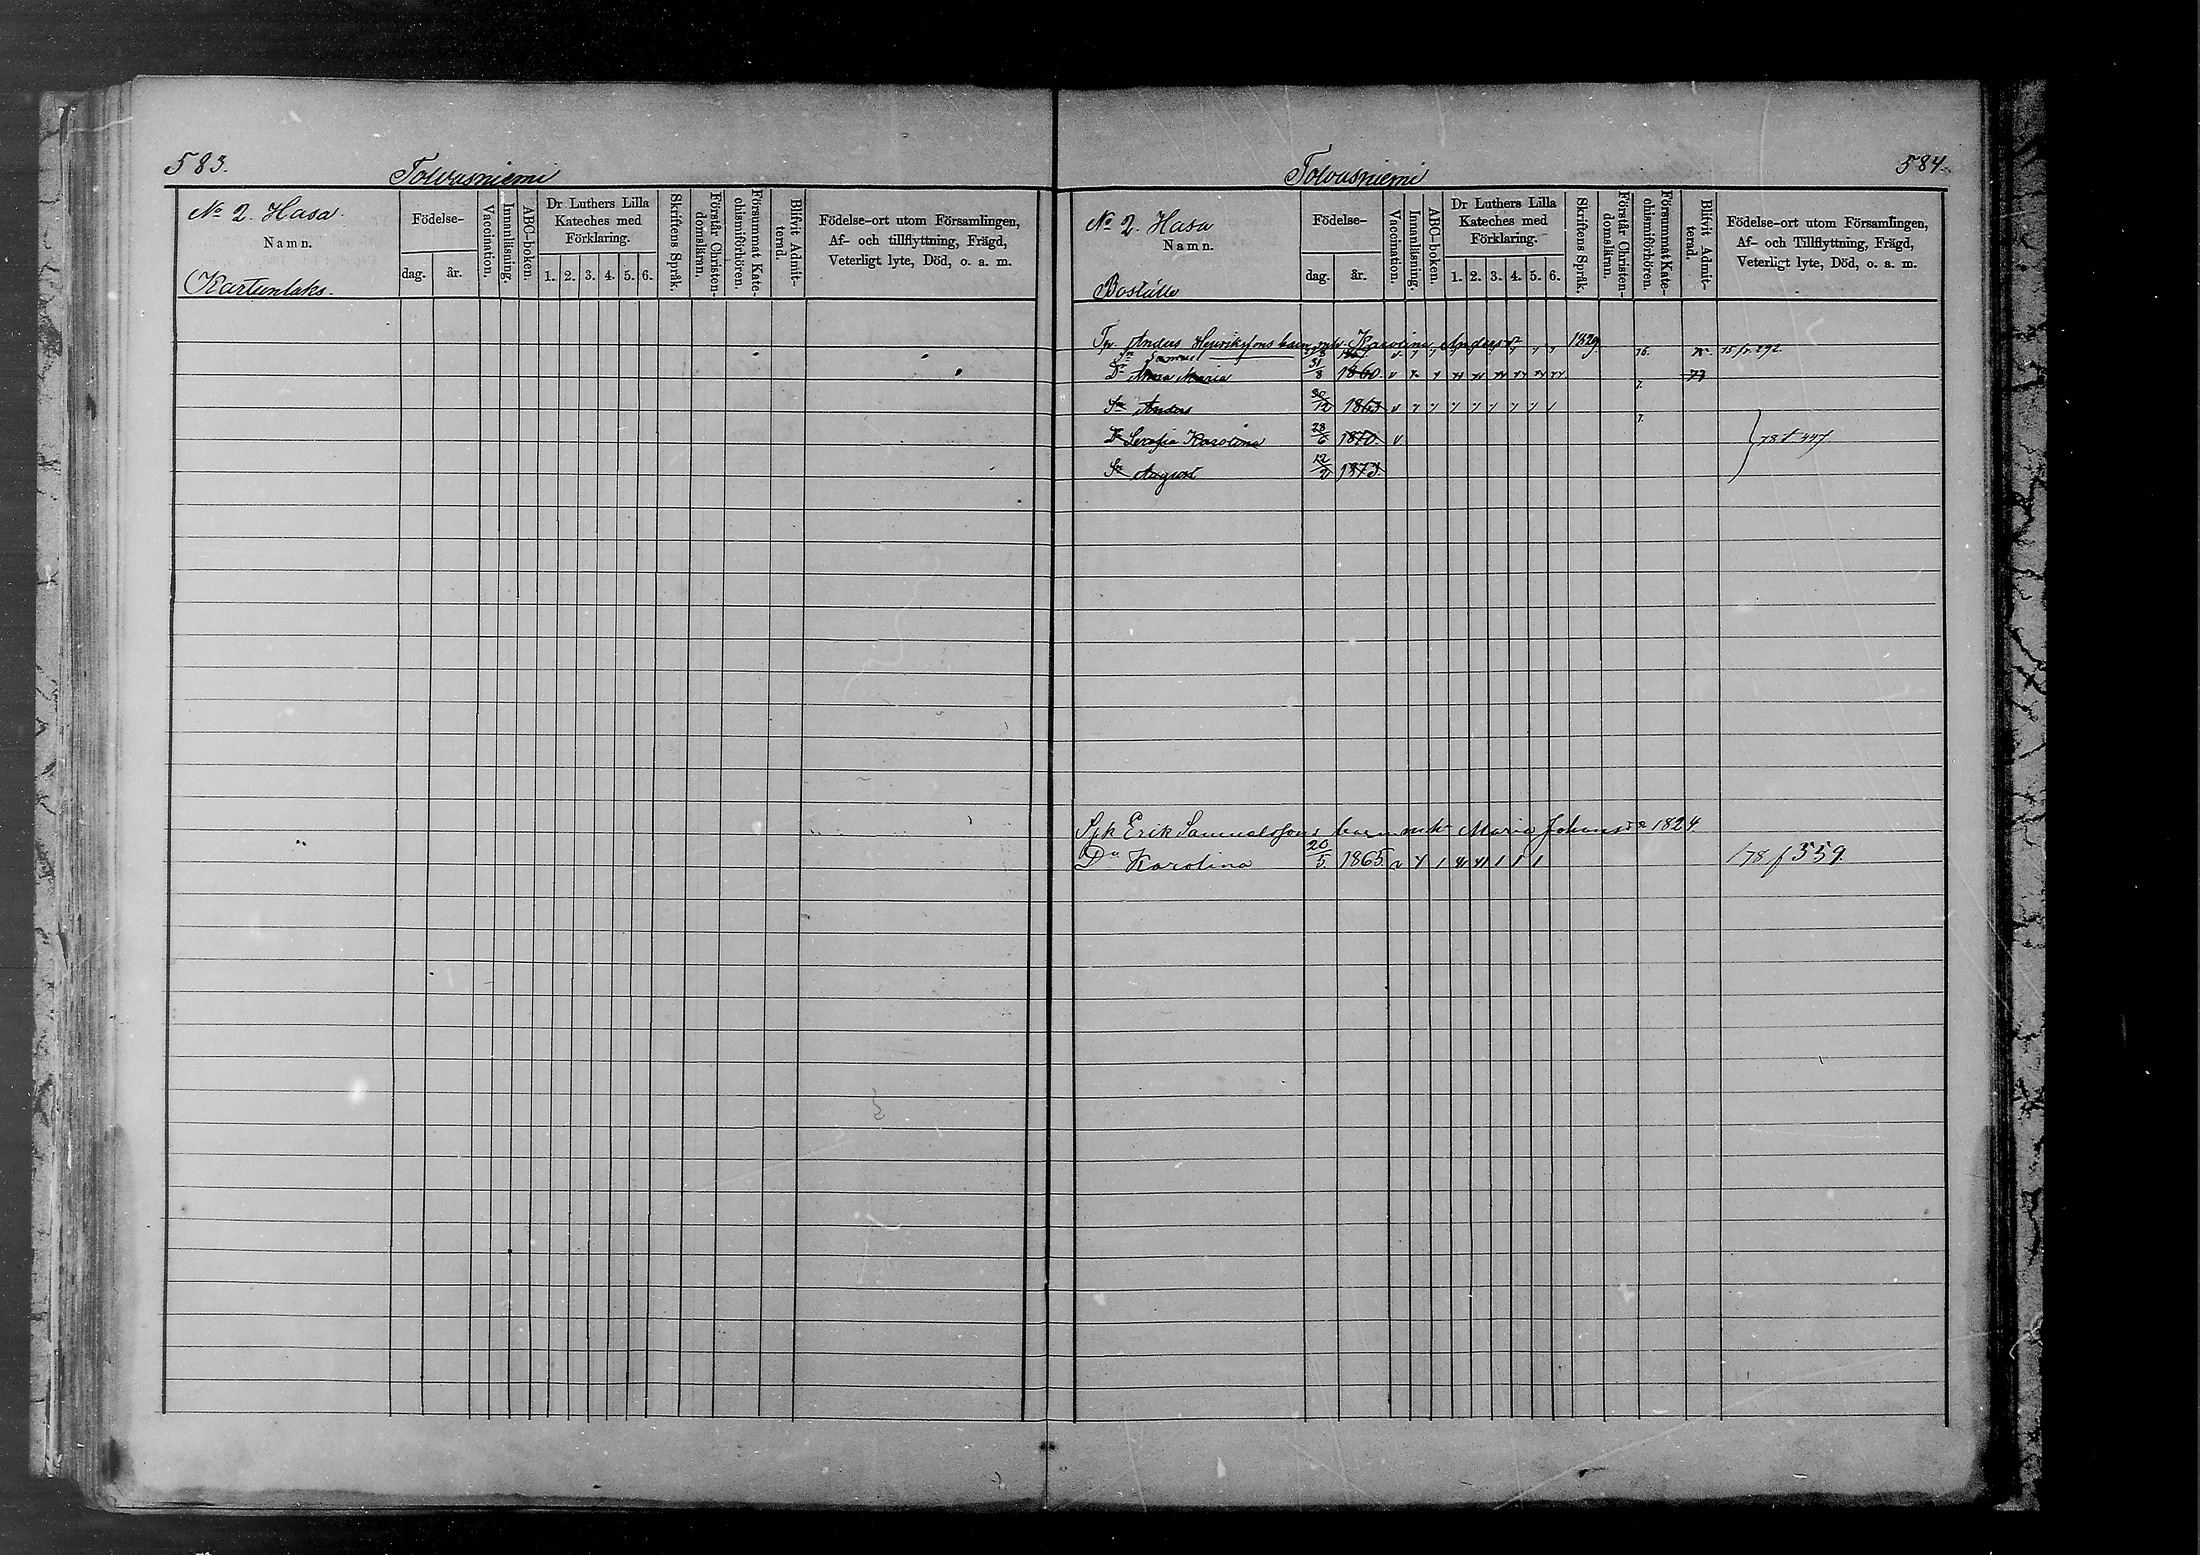 583.
Tolvasniemi
No 2. Hasa.
Namn.
Kartunlaks.
Födelse-
dag. år.
Vaccination.
Innanläsning.
ABC-boken.
Dr Luthers Lilla
Kateches med
Förklaring.
1. 2. 3. 4. 5. 6.
Skriftens Språk.
Förstår Christen-
domsläran.
Försummat Kate-
chismiförhören.
Blifvit Admit-
terad.
Födelse-ort utom Församlingen,
Af- och tillflyttning, Frägd,
Veterligt lyte, Död, o. a. m.
Tolvasniemi
584.
No 2. Hasa
Namn.
Boställe
Födelse-
dag. år.
Vaccination.
Innanläsning.
ABC-boken.
Dr Luthers Lilla
Kateches med
Förklaring.
1. 2. 3. 4. 5. 6.
Skriftens Språk.
Förstår Christen-
domsläran.
Försummat Kate-
chismiförhören.
Blifvit Admit-
terad.
Födelse-ort utom Församlingen,
Af- och Tillflyttning, Frägd,
Veterligt lyte, Död, o. a. m.
Anders Henrikssons barn Karolina Andersdr 1829.
Sn Samuel 76. 292
Dr Anna Maria 31/8 1860 v 77
7.
Sn Anders 30/12 1863 v
7.
Dr Serafia Karolina 28/6 1870. v
Sn August 12/2 1873.
Erik Samuelssons barn Maria Johansdr 1824.
Dr Karolina 20/5 1865. v 178 f 559.